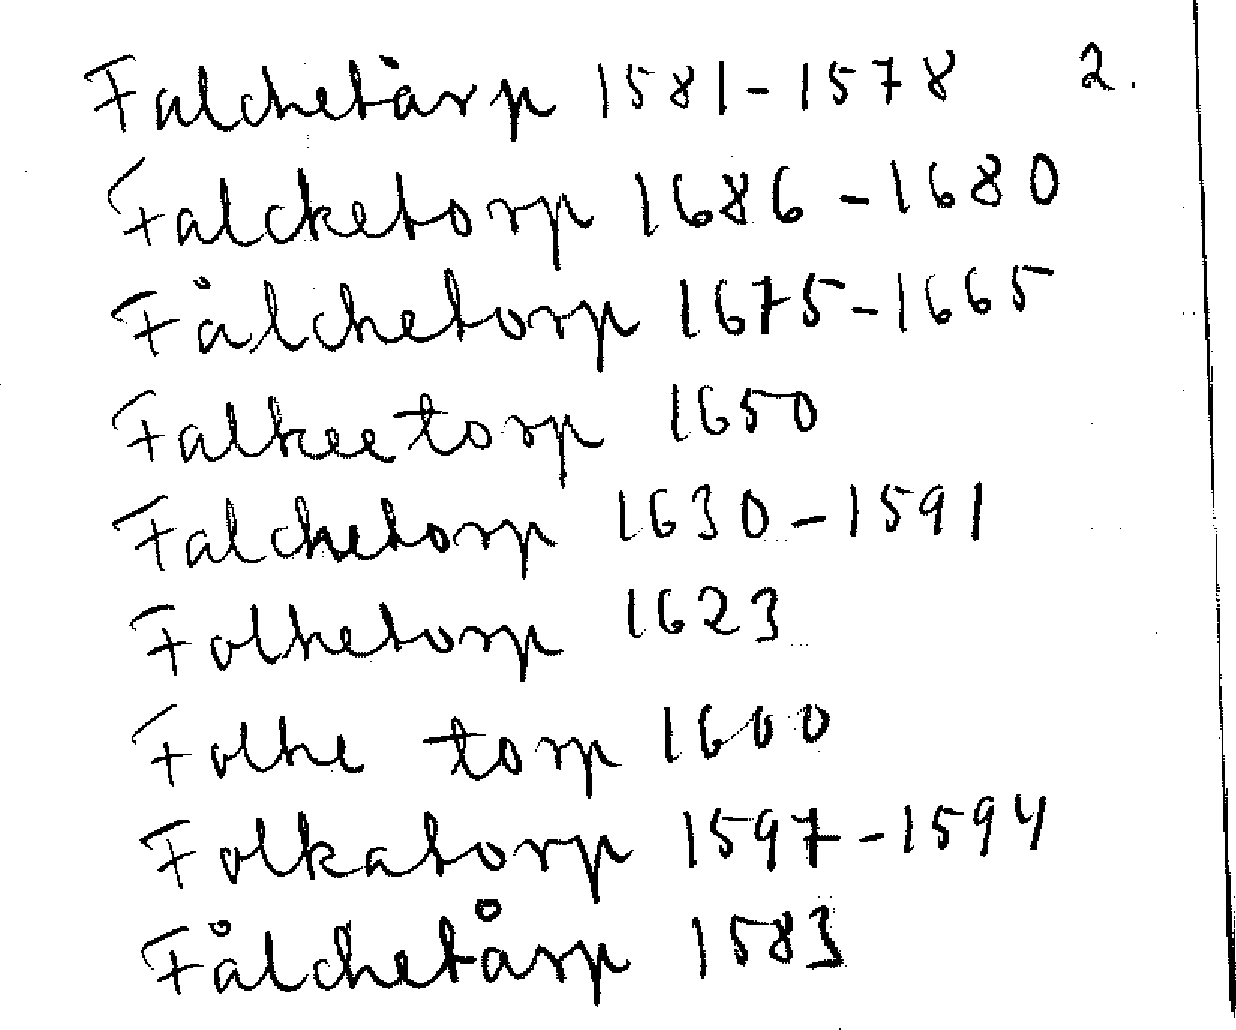 Falchetårp 1581-1578 2.
Falcketorp 1686-1680
Fålchetorp 1675-1665
Falkeetorp 1650
Falchetorp 1630-1591
Folketorp 1623
Folke torp 1600
Folkatorp 1597-1594
Fålchetårp 1583